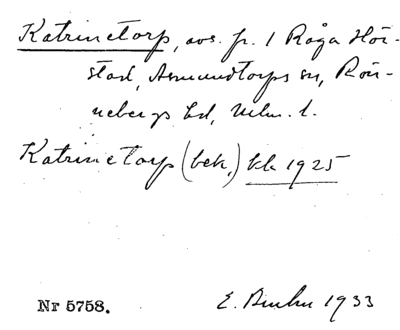 Katrinetorp, avs. fr. 1 Råga Hör-
stad, Asmundtorps sn, Rön-
nebergs hd, Mlm. l.
Katrinetorp (bek.) kk 1925
Nr 5758.
E. 1933